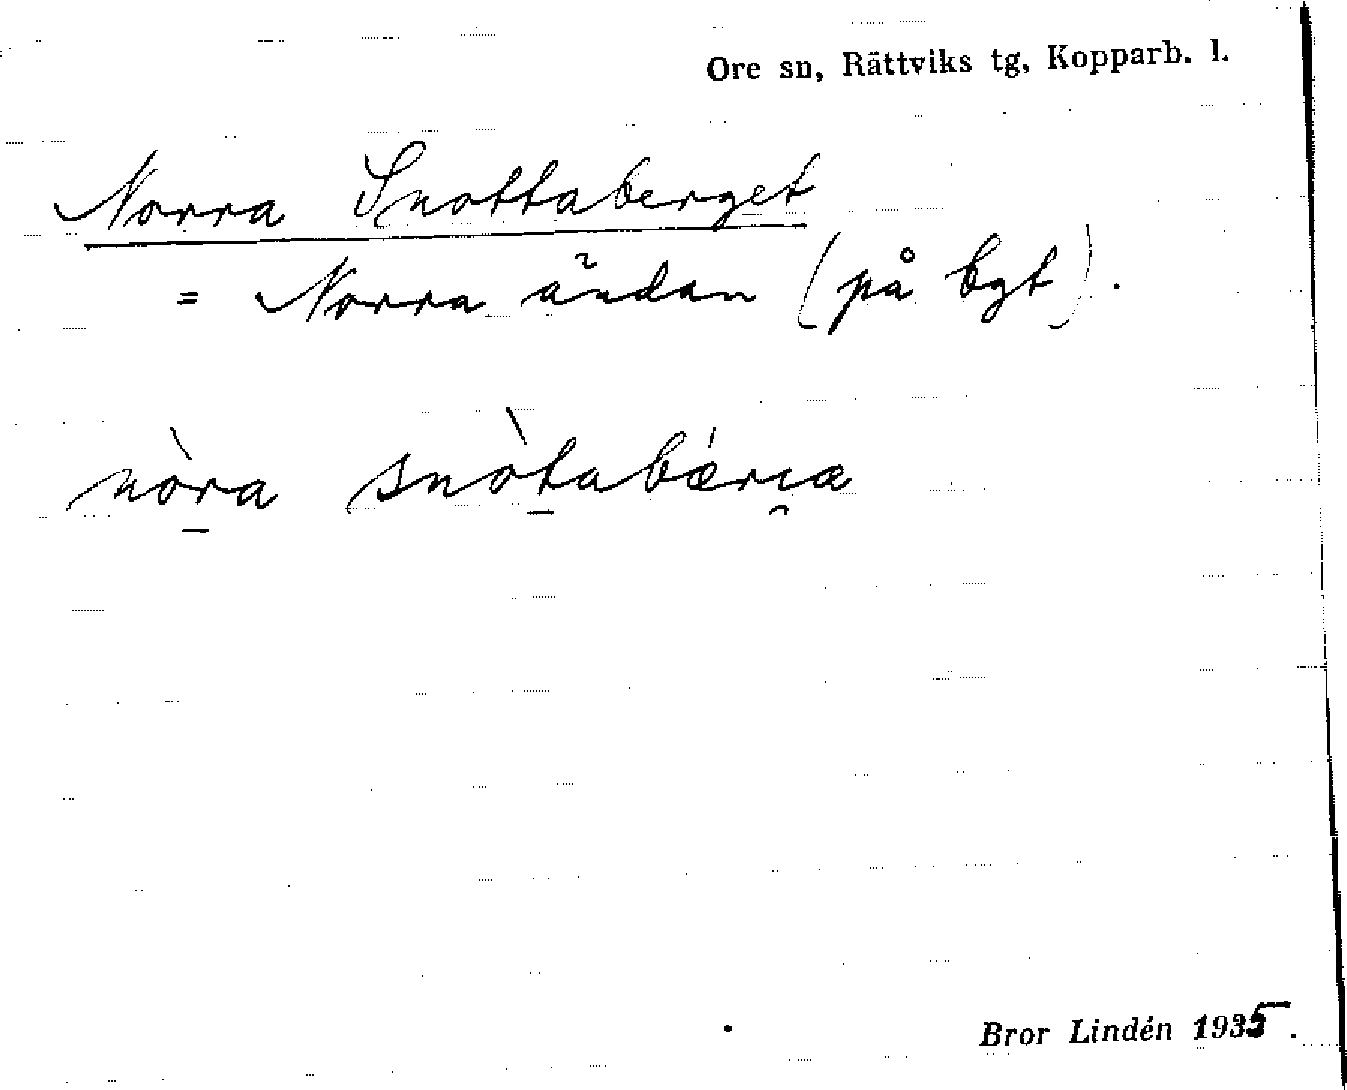 Ore sn, Rättviks tg, Kopparb. l.
Norra Snottaberget
= Norra ändan (på bgt).
nòra snòtabǽrıæ
Bror Lindén 1935.